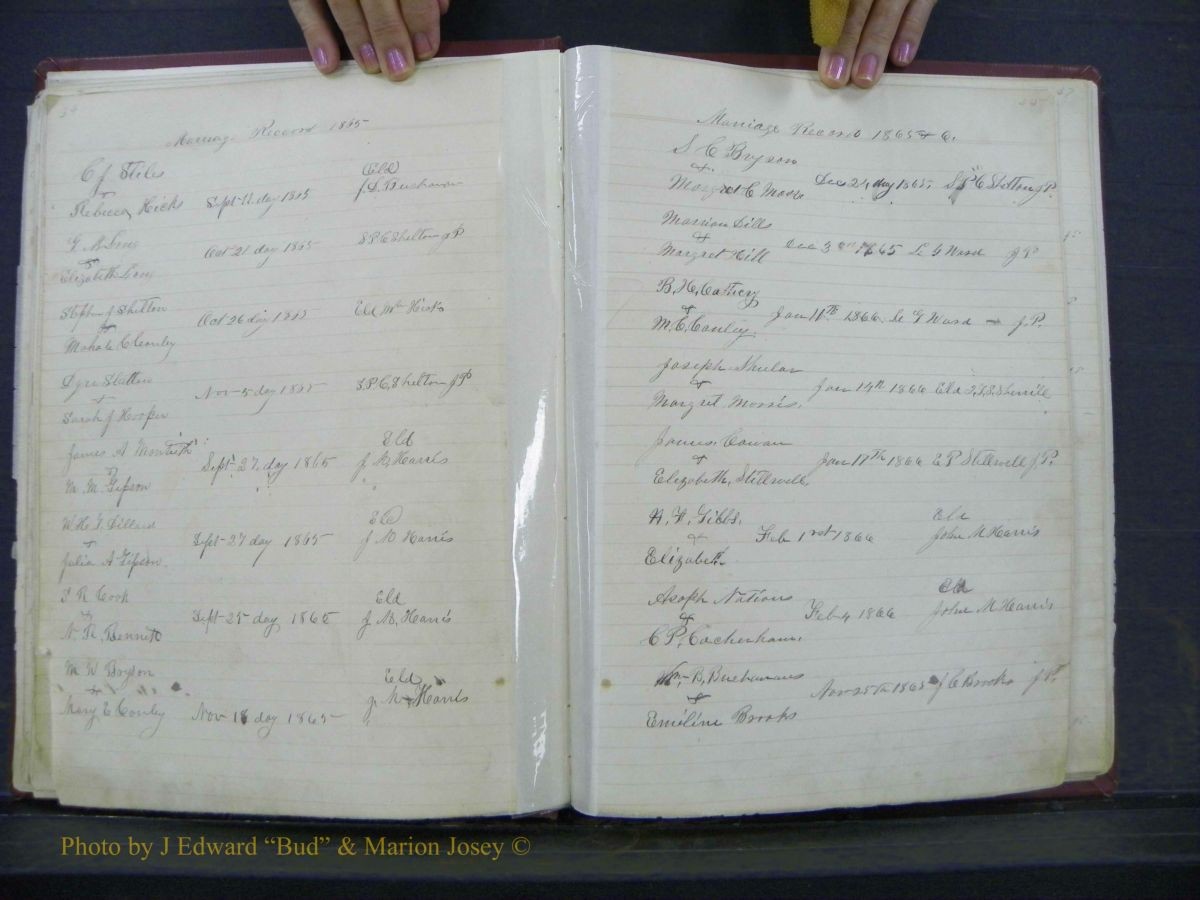 34
Marriage Record 1865
C J Stiles
&
Rebecca Hicks Sept 11 day 1865 Eld J. S. Buchanan
G M
&
Elizabeth Oct 21 day 1865 S. P. C. Shelton J P
Stephen J Shelton
&
Conley Oct 26 day 1865 Eld Wm Hicks
Shelton
&
Sarah J Hooper Nov 5 day 1865 S. P. C. Shelton J P
James A Monteith
&
M. M. Gipson Sept 27 day 1865 Eld J M Harris
W. H. Dillard
&
Julia A Gipson Sept 27 day 1865 Eld J M Harris
R Cook
&
N. R. Bennett Sept 25 day 1865 Eld J. M. Harris
M W Bryson
&
Mary E Conley Nov 18 day 1865 Eld J. M. Harris
37
Marriage Record 1865 & 6.
S C Bryson
&
Margret C Moore Dec 24 day 1865 S P C Shelton J P.
Marrion Dills
&
Margret Hill Dec 3 1865 L G Ward J P
B. H. Cathey
&
M. C. Conley Jan 11th 1866 L G Ward J. P.
Joseph Shular
&
Margret Morris. Jan 14th 1866 Eld Sherrill
James Cowan
&
Elizabeth Stillwell Jan 11th 1866 E P Stillwell J P.
Gibbs
&
Elizabeth Feb 1rst 1866 Eld John M Harris
Asoph Nations
&
C P. Feb 4 1866 Eld John M Harris
Wm. B. Buchanan
&
Emiline Brooks Nov 25th 1865 J C Brooks J P.
Photo by J Edward “Bud” & Marion Josey ©